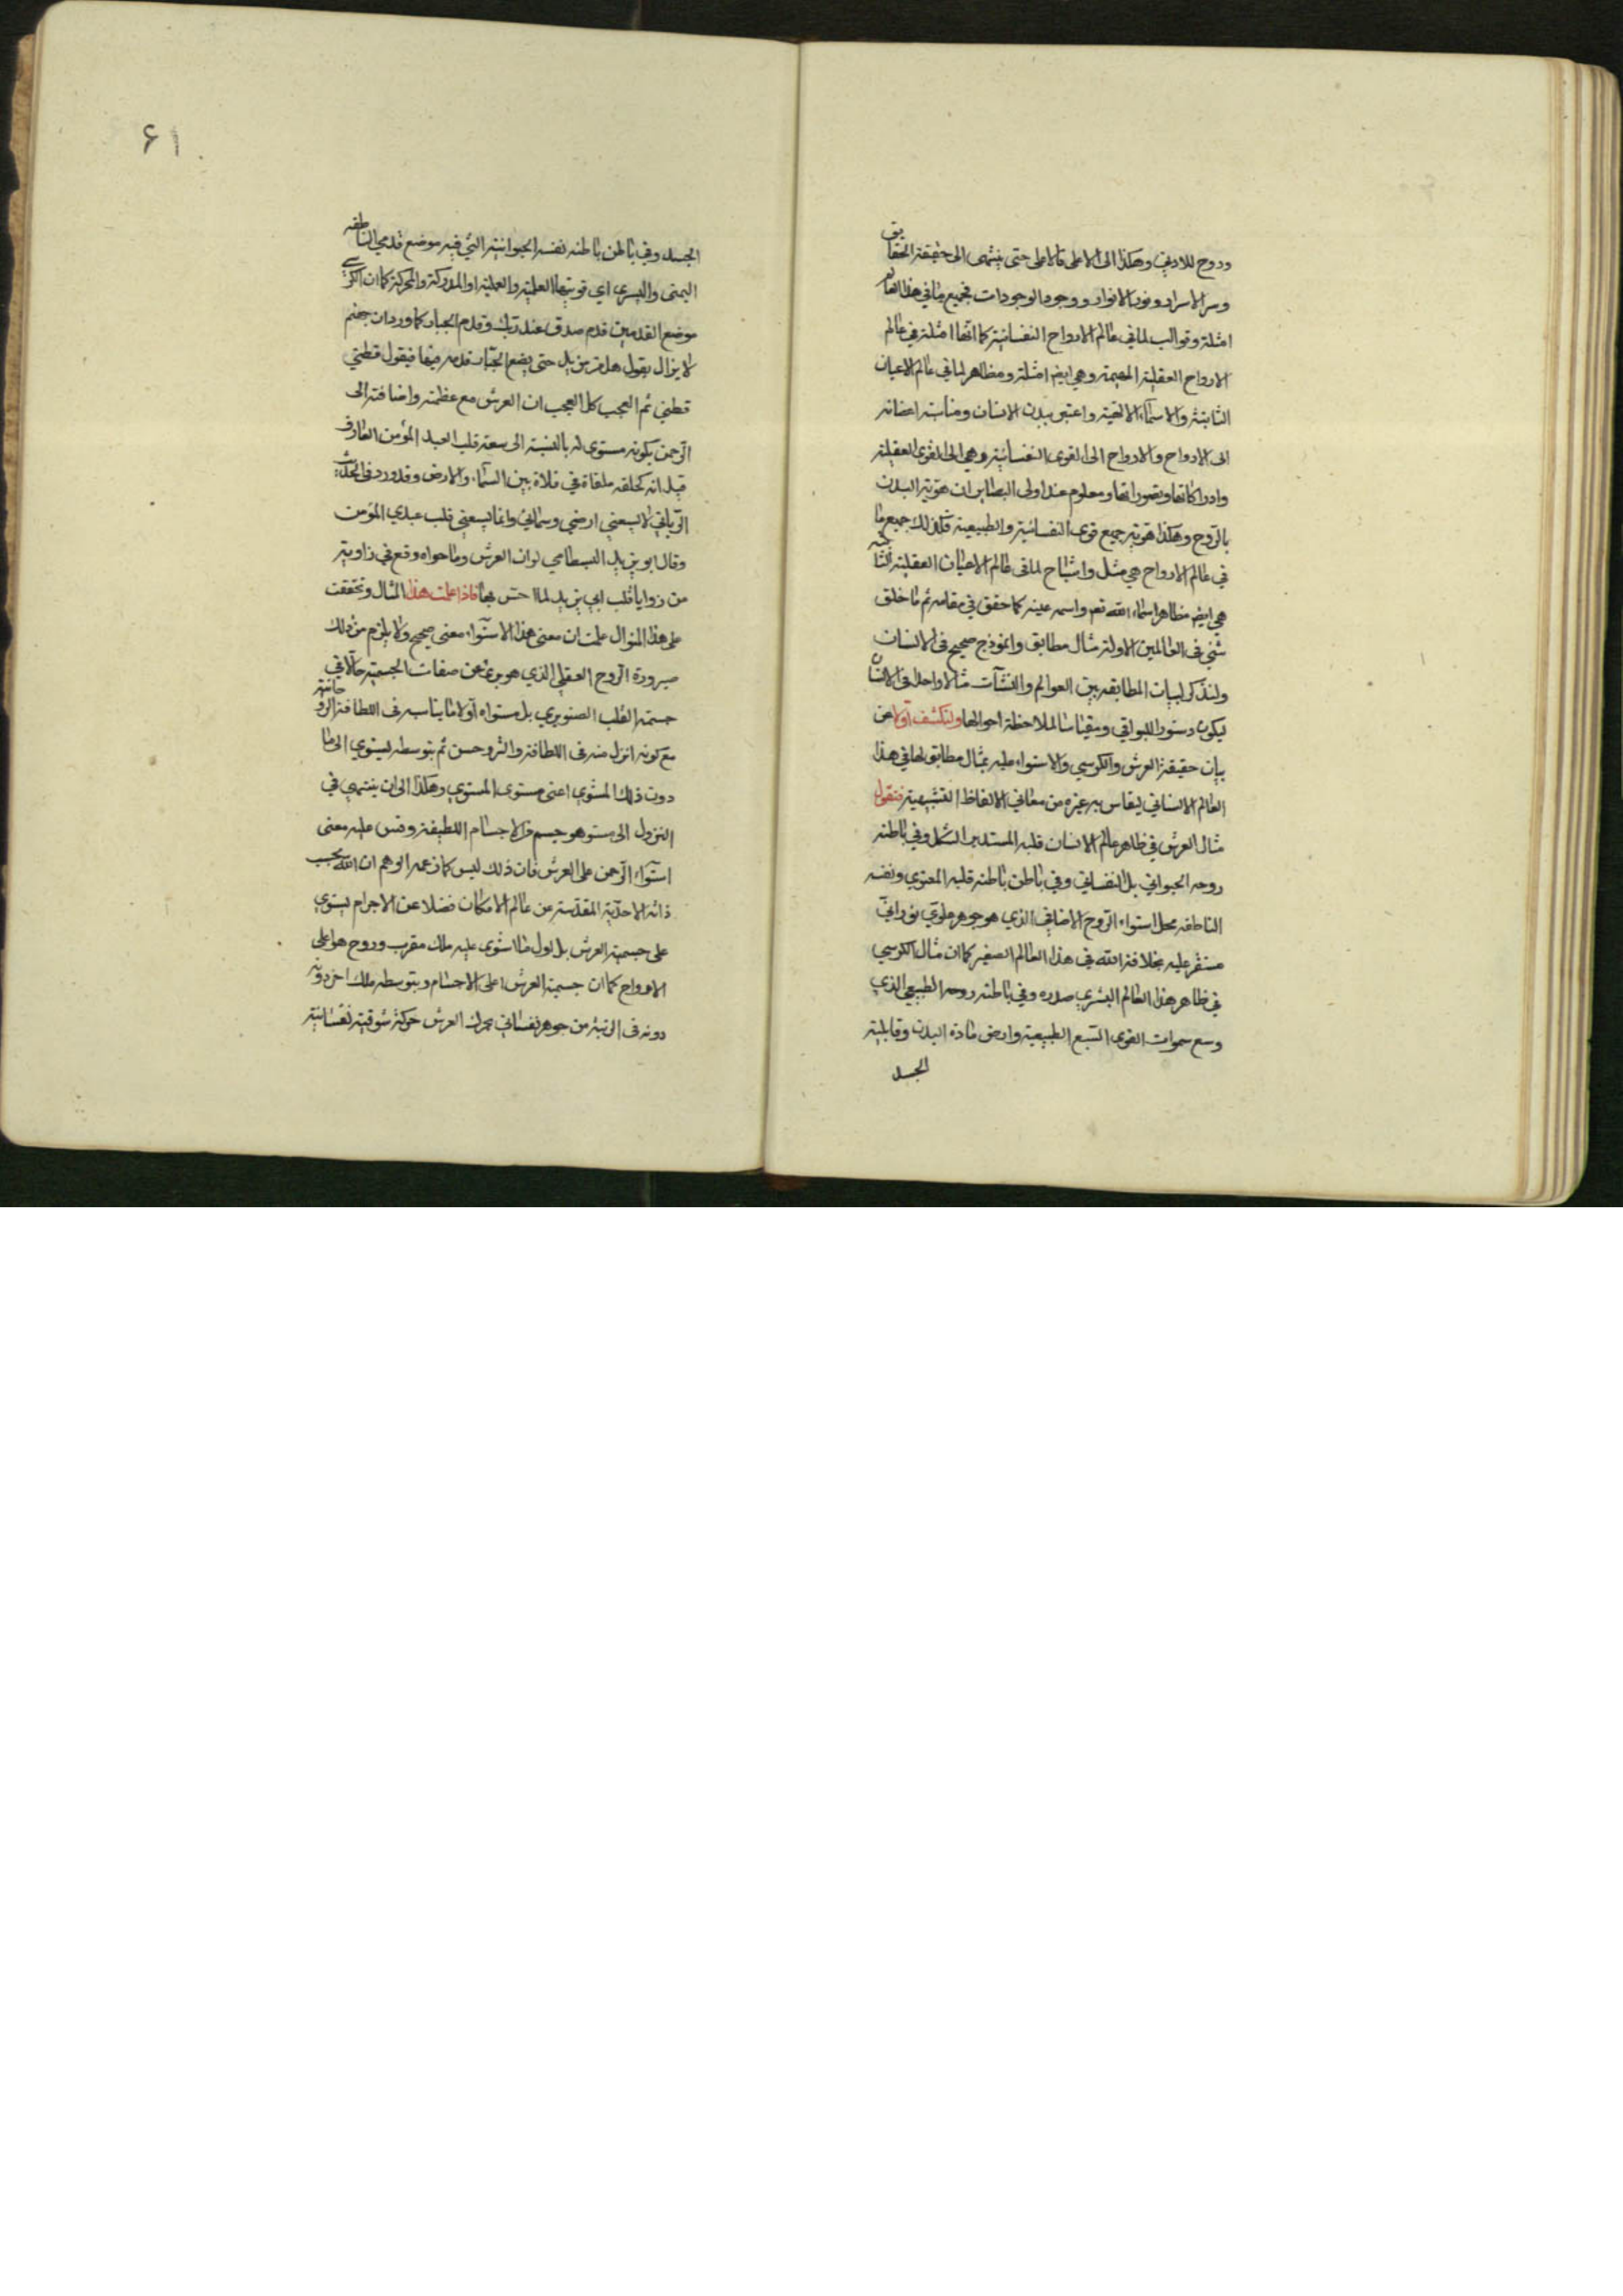 وروح للادنى وهكذا الى الاعلى فالاعلى حتى ينتهى الى حقيقة الحقايق
وسر الاسرار ونور الانوار ووجود الوجودات فجميع ما في هذا العالم
امثلة وقوالب لما في عالم الارواح النفسانية كما انها امثلة في عالم
الارواح العقلية المهيمة وهي ايضا امثلة ومظاهر لما في عالم الاعيان
الثابتة والاسماء الالهية واعتبر ببدن الانسان ومناسبة اعضائه
الى الارواح والارواح الى القوى النفسانية وهي الى القوى العقلية
وادراكاتها وتصوراتها ومعلوم عند اولى البصاير ان هوية البدن
بالروح وهكذا هوية جميع قوى النفسانية والطبيعية فكذلك جميع ما
في عالم الارواح هي مثل واشباح لما في عالم الاعيان العقلية الثابتة
هي ايضا مظاهر اسماء الله تعم واسمه عينه كما حقق في مقامه ثم ما خلق
شئ في العالمين الا وله مثال مطابق وانموذج صحيح في الانسان
ولنذكر لبيان المطابقه بين العوالم والنشآت مثالا واحدا في الانسان
ليكون دستورا للبواقي ومقياسا لملاحظة احوالها ولنكشف اولا عن
بيان حقيقة العرش والكرسي والاستواء عليه بمثال مطابق لها في هذا
العالم الانساني ليقاس به غيره من معاني الالفاظ التشبيهية فنقول
مثال العرش في ظاهر عالم الانسان قلبه المستدير الشكل وفي باطنه
روحه الحيواني بل النفساني وفي باطن باطنه قلبه المعنوي ونفسه
الناطقه محل استواء الروح الاضافي الذي هو جوهر علوي نوراني
مستقر عليه بخلافة الله في هذا العالم الصغير كما ان مثال الكرسي
في ظاهر هذا العالم البشري صدره وفي باطنه روحه الطبيعي الذي
وسع سموات القوى السبع الطبيعية وارض مادة البدن وقابلية
الجسد
۶۱
الجسد وفي باطن باطنه نفسه الحيوانية التي فيه موضع قدمي الناطقه
اليمنى واليسرى اي قوتيها العلمية والعملية او المدركة والمحركة كما ان الكرسي
موضع القدمين قدم صدق عند ربك وقدم الجبار كما ورد ان جهنم
لا يزال يقول هل من مزيد حتى يضع الجبار قدمه فيها فيقول قطني
قطني ثم العجب كل العجب ان العرش مع عظمته واضافته الى
الرحمن بكونه مستوى له بالنسبة الى سعة قلب العبد المؤمن العارف
قيل انه كحلقه ملقاة في فلاة بين السماء والارض وقد ورد في الحديث
الرباني لا يسعني ارضي وسمائي وانما يسعني قلب عبدي المؤمن
وقال ابو يزيد البسطامي لو ان العرش وما حواه وقع في زاوية
من زوايا قلب ابي يزيد لما احس بها فاذا علمت هذا المثال وتحققت
على هذا المنوال علمت ان معنى هذا الاستواء معنى صحيح ولا يلزم من ذلك
صيرورة الروح العقلي الذي هو برئ عن صفات الجسمية حالا في
جسمية القلب الصنوبري بل مستواه اولا ما يناسبه في اللطافة الروحانية
مع كونه انزل منه في اللطافة والتروحن ثم بتوسطه يستوي الى ما
دون ذلك المستوي اعنى مستوى المستوي وهكذا الى ان ينتهي في
النزول الى مستو هو جسم من الاجسام اللطيفة وقس عليه معنى
استواء الرحمن على العرش فان ذلك ليس كما زعمه الوهم ان الله بحسب
ذاته الاحدية المقدسة عن عالم الامكان فضلا عن الاجرام يستوي
على جسمية العرش بل اول ما استوى عليه ملك مقرب وروح هو اعلى
الارواح كما ان جسمية العرش اعلى الاجسام وبتوسطه ملك اخر دونه
دونه في الرتبة من جوهر نفساني محرك العرش حركة شوقية نفسانية